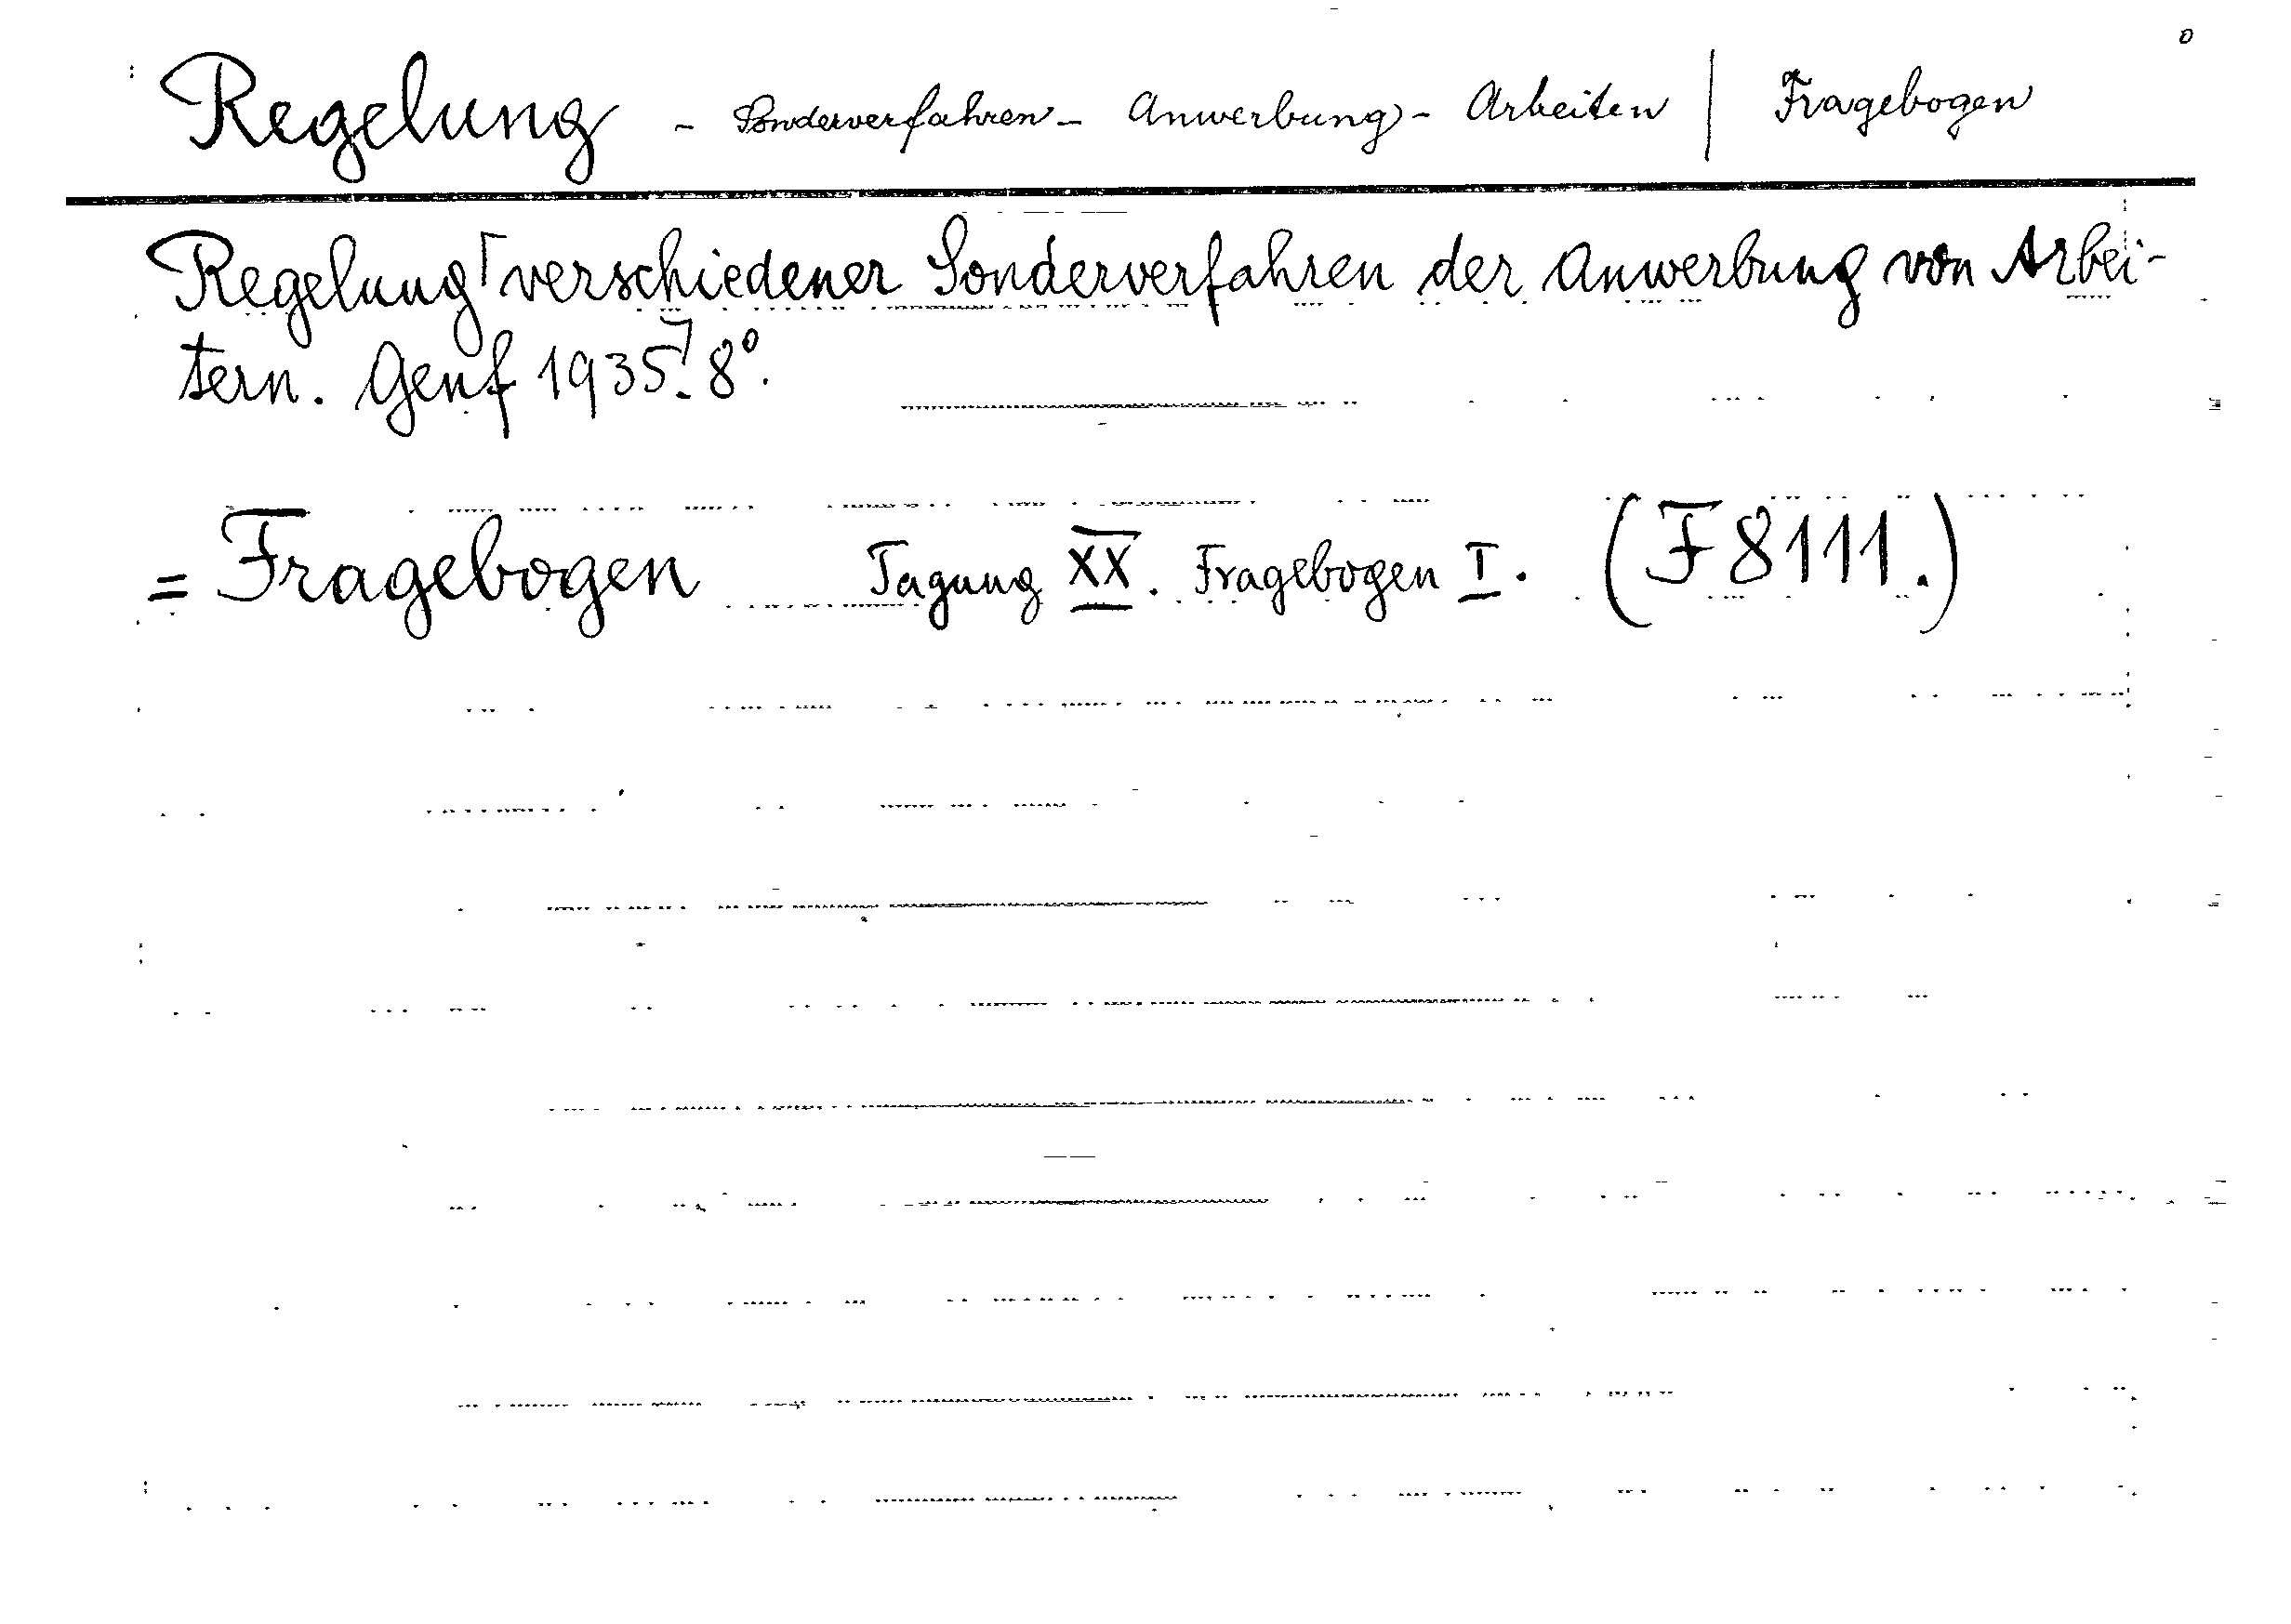 Regelung - Sonderverfahren - Anwerbung - Arbeiten | Fragebogen
Regelung ⌈verschiedener Sonderverfahren der Anwerbung von Arbei-
tern. Genf 1935.⌉ 8°.
= Fragebogen Tagung XX. Fragebogen I. (F 8111.)